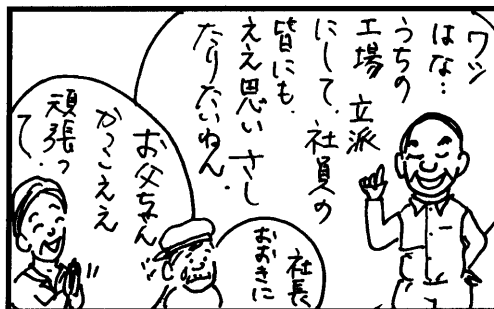 ワシ
はな…
うちの
工場 立派
にして、社員の
皆にも、
ええ思い さし
たりたいねん。
お父ちゃん
かっこええ
頑張っ
て。
社長
おおきに